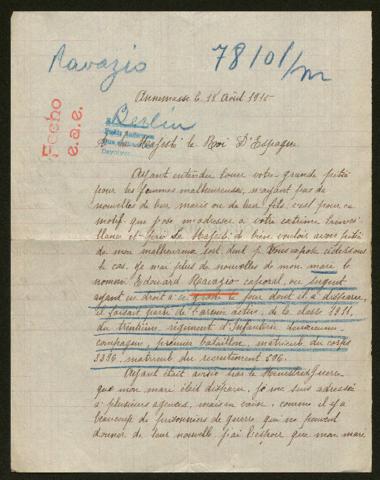 Ravazio
78101/m
Annemasse le 18 Août 1915
Fecho
e.a.e.
Berlin
A Sa Majesté le Roi D'Espagne
Ayant entendu louer votre grande pitié
pour les femmes malheureuses, n'ayant pas de
nouvelles de leur maris ou de leur fils, c'est pour ce
motif que j'ose m'adresser à votre extrême bienveil
llance et prie Sa Majesté de bien vouloir avoir pitié
de mon malheureux sort, dont je vous expose ci dessous
le cas. Je n'ai plus de nouvelles de mon mari le
nommé Edouard Ravazio caporal, ou sergent
ayant eu droit à ce grade le jour dont il a disparu,
il faisait partie de l'armée active, de la classe 1911,
du trentième régiment d'Infanterie
compagnie, premier bataillon, matricule du corps
3296, matricule du recrutement 506.
Ayant était avisé par le Ministre Guerre
que mon mari était disparu, je me suis adressée
à plusieurs agences, mais en vain, comme il y a
beaucoup de prisonniers de guerre, qui ne peuvent
donner de leur nouvelle, j'ai l'espoir que mon mari